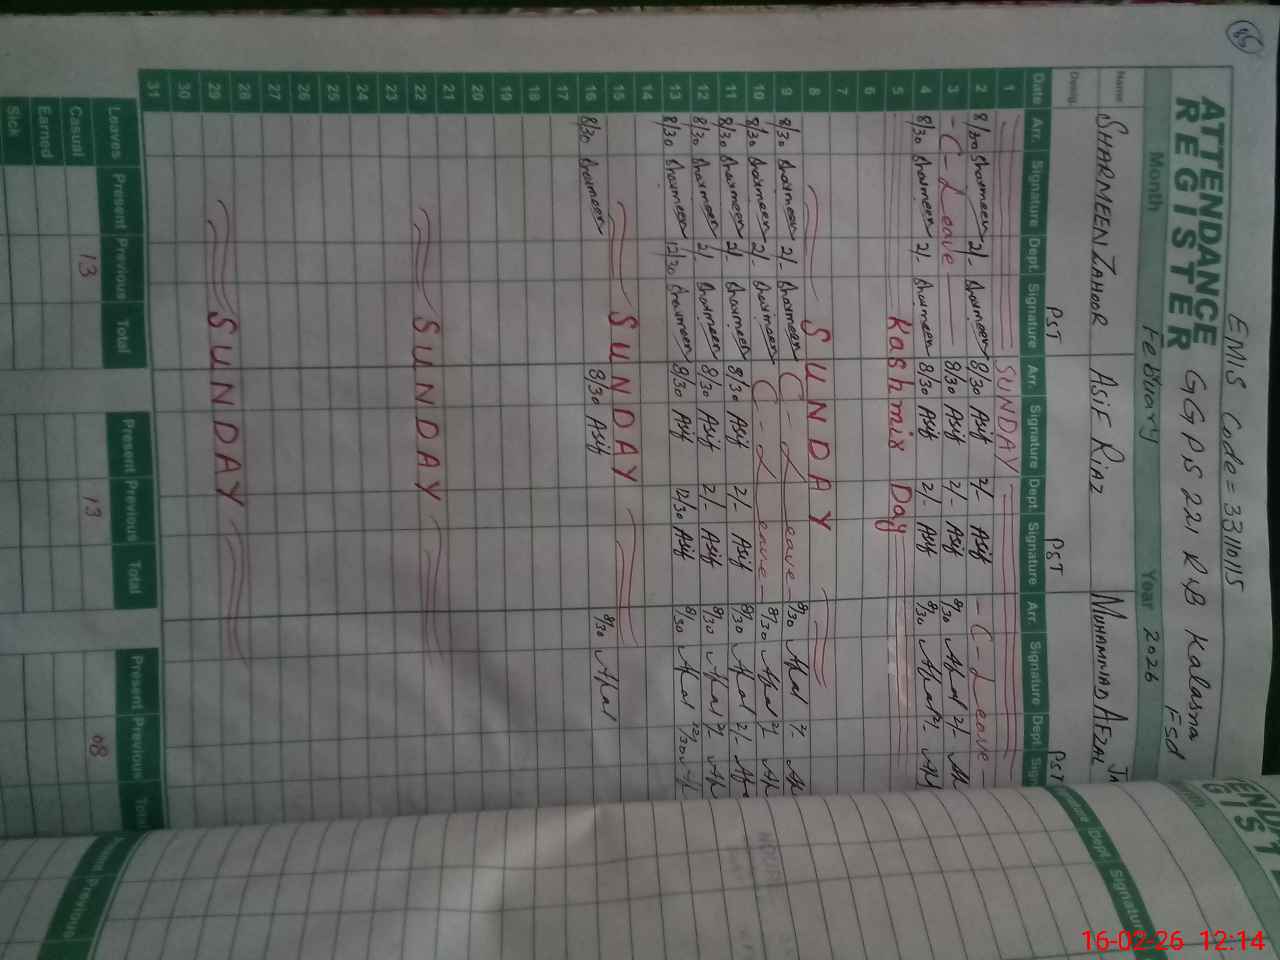 85
EMIS Code = 33110115
ATTENDANCE REGISTER GGPS 221 RB Kalasma Fsd
Month Febuary Year 2026
Name SHARMEEN ZAHOOR ASIF RIAZ MUHAMMAD AFZAL
Desig. PST PST PST
Date Arr. Signature Dept. Signature Arr. Signature Dept. Signature Arr. Signature Dept. Sign
1 SUNDAY
2 8/30 Sharmeen 2/- Sharmeen 8/30 Asif 2/- Asif - C - Leave -
3 - C - Leave 8/30 Asif 2/- Asif 8/30 2/-
4 8/30 Sharmeen 2/- Sharmeen 8/30 Asif 2/- Asif 8/30 2/-
5 Kashmir Day
6
7
8 SUNDAY
9 8/30 Sharmeen 2/- Sharmeen C - Leave - 8/30 2/-
10 8/30 Sharmeen 2/- Sharmeen C - Leave - 8/30 2/-
11 8/30 Sharmeen 2/- Sharmeen 8/30 Asif 2/- Asif 8/30 2/-
12 8/30 Sharmeen 2/- Sharmeen 8/30 Asif 2/- Asif 8/30 2/-
13 8/30 Sharmeen 12/30 Sharmeen 8/30 Asif 12/30 Asif 8/30 12/30
14
15 SUNDAY
16 8/30 Sharmeen 8/30 Asif 8/30
17
18
19
20
21
22 SUNDAY
23
24
25
26
27
28
29 SUNDAY
30
31
Leaves Present Previous Total Present Previous Total Present Previous Total
Casual 13 13 08
Earned
Sick
16-02-26 12:14